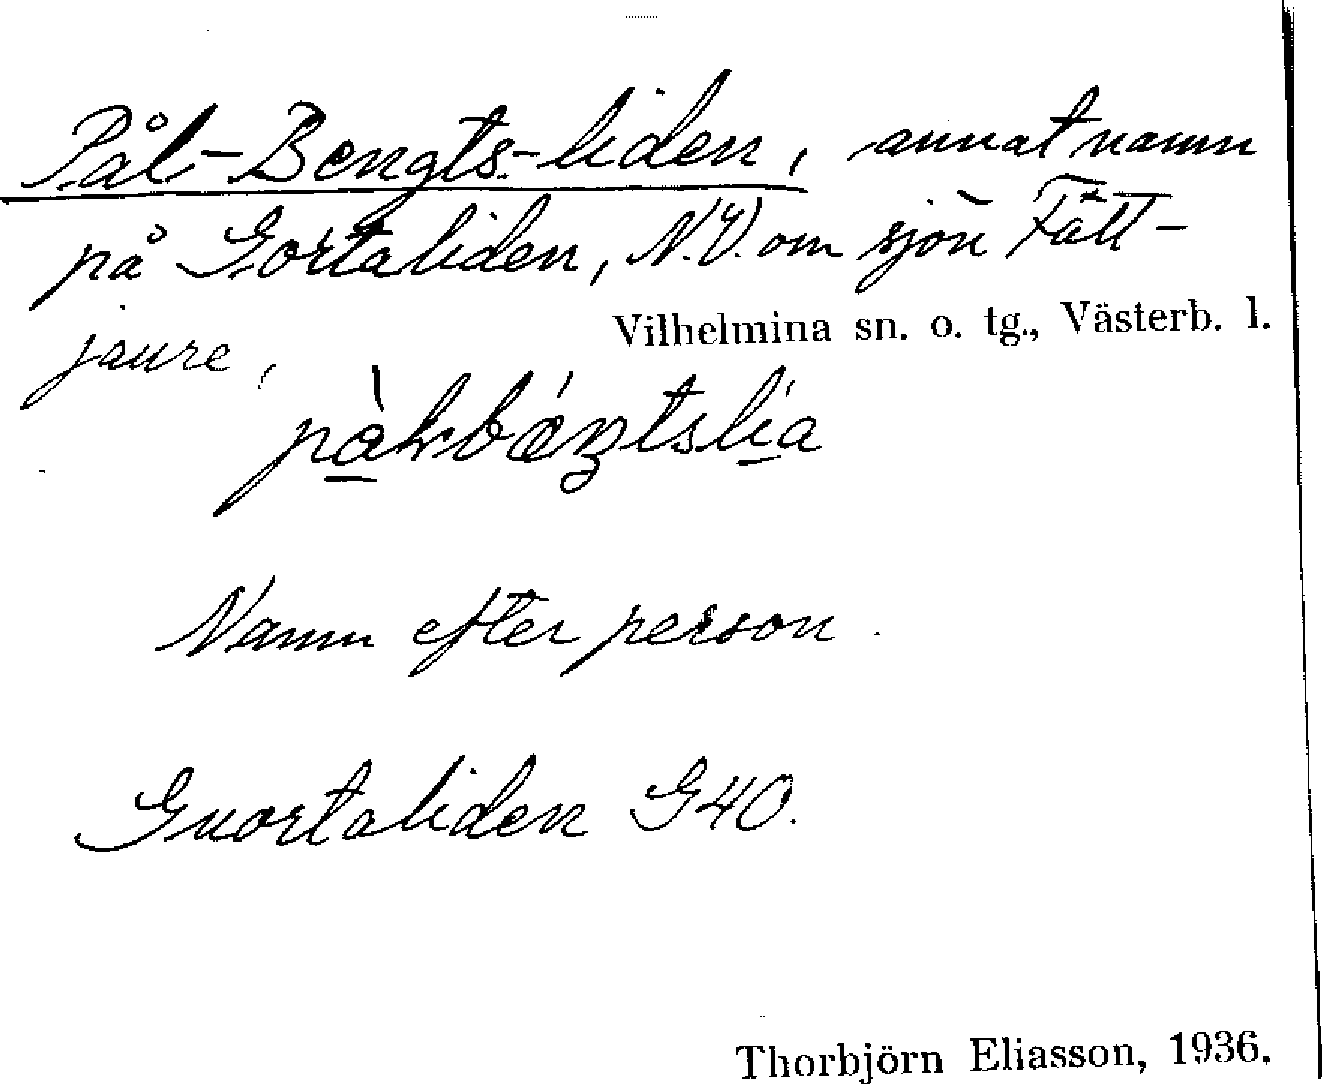 Pål-Bengts-liden, annat namn
på Gortaliden, N.V. om sjön Fätt-
jaure,
Vilhelmina sn. o. tg., Västerb. l.
Namn efter person.
Guortaliden G40.
Thorbjörn Eliasson, 1936.